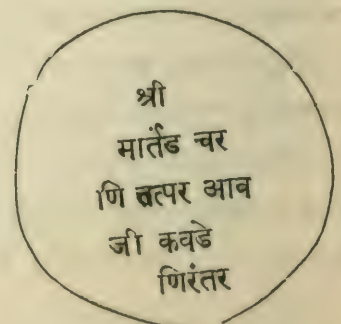 श्री
मार्तंड चर
णि तत्पर आव
जी कवडे
णिरंतर